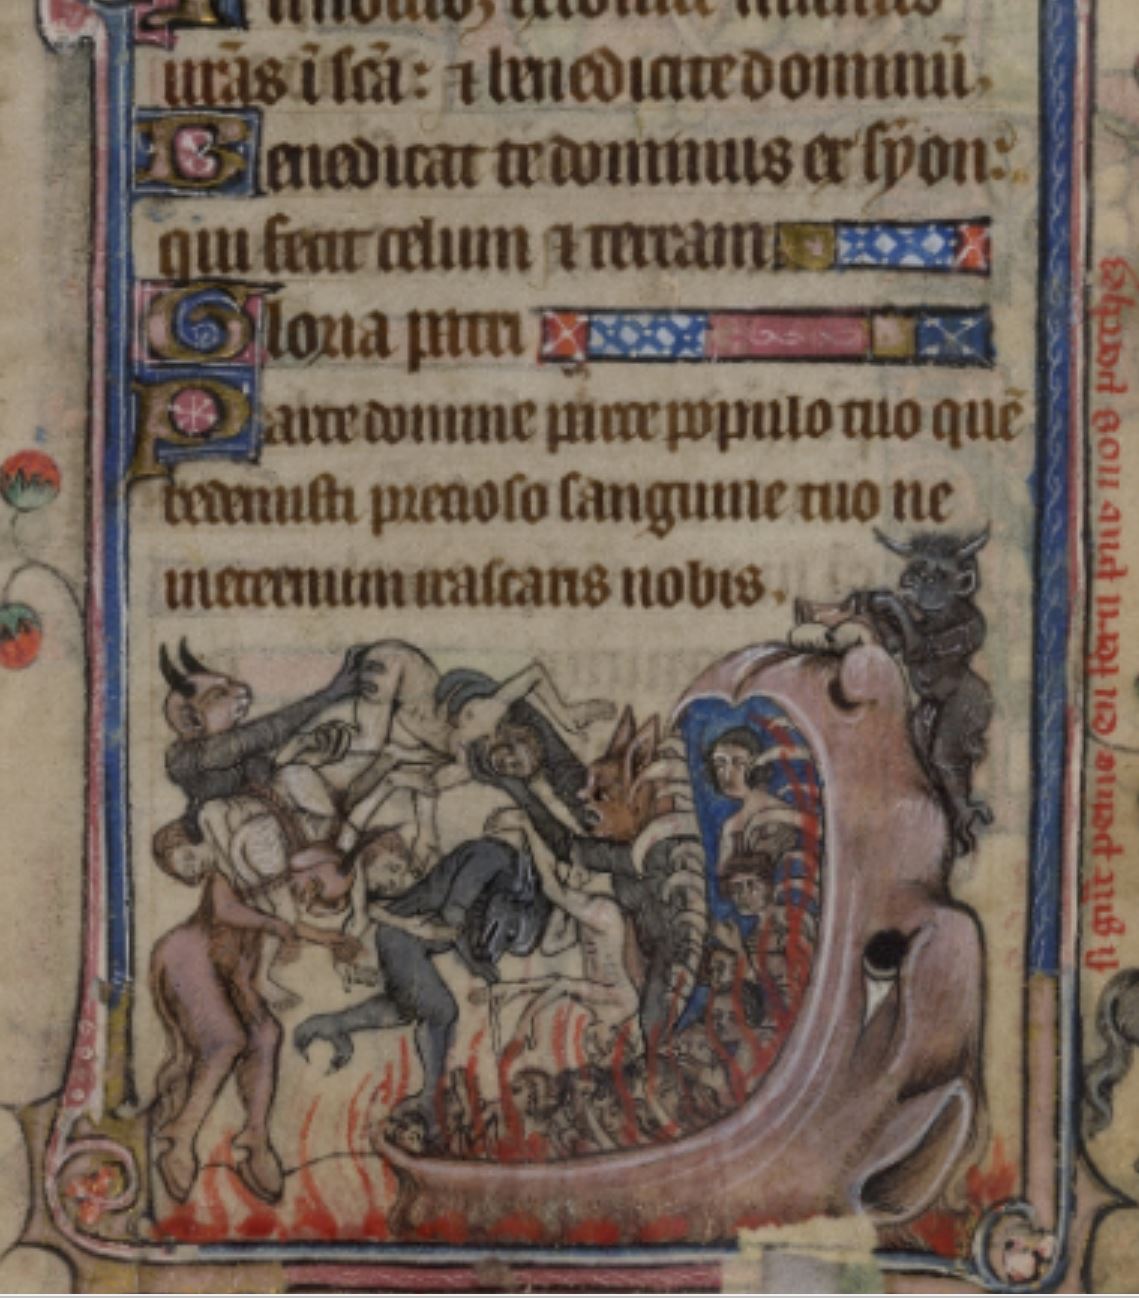 manus
urãs ĩ scã: ⁊ benedicite dominũ.
Benedicat te dominus ex syon:
qui fecit celum ⁊ terram
Gloria patri
Parce domine parce populo tuo quẽ
redemisti precioso sanguine tuo ne
ineternum irascaris nobis.
si peine en nos pecchez